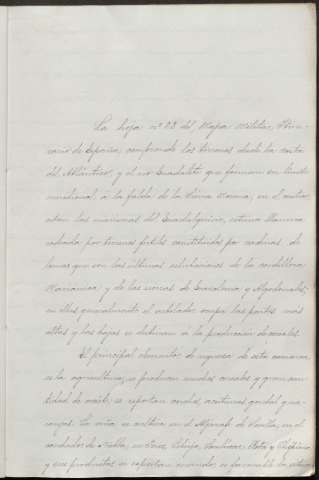 La hoja nº 28 del Mapa Militar Itine-
rario de España, comprende los terrenos desde la costa
del Atlántico, y el río Guadalete que forman su límite
meridional, á la falda de la Sierra Morena, en el centro
están las marismas del Guadalquivir, extensa llanura
rodeada por terrenos fértiles constituidos por cadenas de
lomas que son las últimas estribaciones de la cordillera
Mariánica y de las sierras de Grazalema y Algodonales;
en ellas generalmente el arbolado ocupa las partes mas
altas y las bajas se destinan á la producción de cereales.
El principal elemento de riqueza de esta comarca
es la agricultura; se producen muchos cereales y gran can-
tidad de aceite, se exportan mucho, aceitunas gordal y man-
La viña se cultiva en el Aljarafe de Sevilla, en el
condado de Niebla, en Jerez, Lebrija, Sanlúcar, Rota y Chipiona
y sus productos se exportan